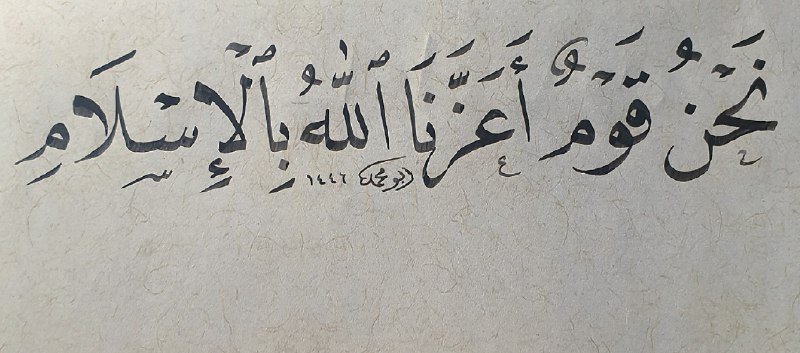 نَحْنُ قَوْمٌ أَعَزَّنَا ٱللَّهُ بِٱلْإِسْلَامِ
(أبو محمد) ١٤٤٦